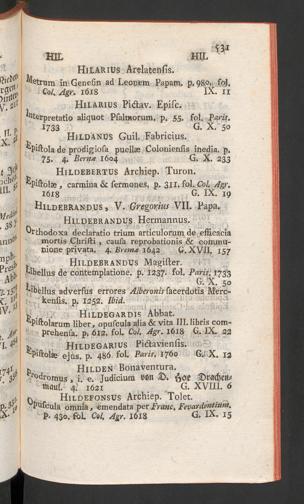 531
HIL HIL
HILARIUS Arelatensis.
Metrum in Genesin ad Leonem Papam. p. 980. fol.
Col. Agr. 1618 IX. 11
HILARIUS Pictav. Episc.
Interpretatio aliquot Psalmorum. p. 55. fol. Paris.
1733 G. X. 50
HILDANUS Guil. Fabricius.
Epistola de prodigiosa puellæ Coloniensis inedia. p.
75. 4. Bernæ 1604 G. X. 233
HILDEBERTUS Archiep. Turon.
Epistolæ, carmina & sermones, p. 311. fol. Col. Agr.
1618 G. IX. 19
HILDEBRANDUS, V. Gregorius VII. Papa.
HILDEBRANDUS Hermannus.
Orthodoxa declaratio trium articulorum de efficacia
mortis Christi, causa reprobationis & commu-
nione privata. 4. Bremæ 1642 G. XVII. 157
HILDEBRANDUS Magister.
Libellus de contemplatione. p. 1237. fol. Paris. 1733
G. X. 50
Libellus adversus errores Alberonis sacerdotis Merc-
kensis. p. 1252. Ibid.
HILDEGARDIS Abbat.
Epistolarum liber, opuscula alia & vita III. libris com-
prehensa. p. 612. fol. Col. Agr. 1618 G. IX. 22
HILDEGARIUS Pictaviensis.
Epistolæ ejus. p. 486. fol. Paris. 1760 G. X. 12
HILDEN Bonaventura.
Prodromus, i. e. Judicium von D. Hoe Drachen-
4. 1621 G. XVIII. 6
HILDEFONSUS Archiep. Tolet.
Opuscula omnia, emendata per Franc. Fevardentium.
p. 430. fol. Col. Agr. 1618 G. IX. 15